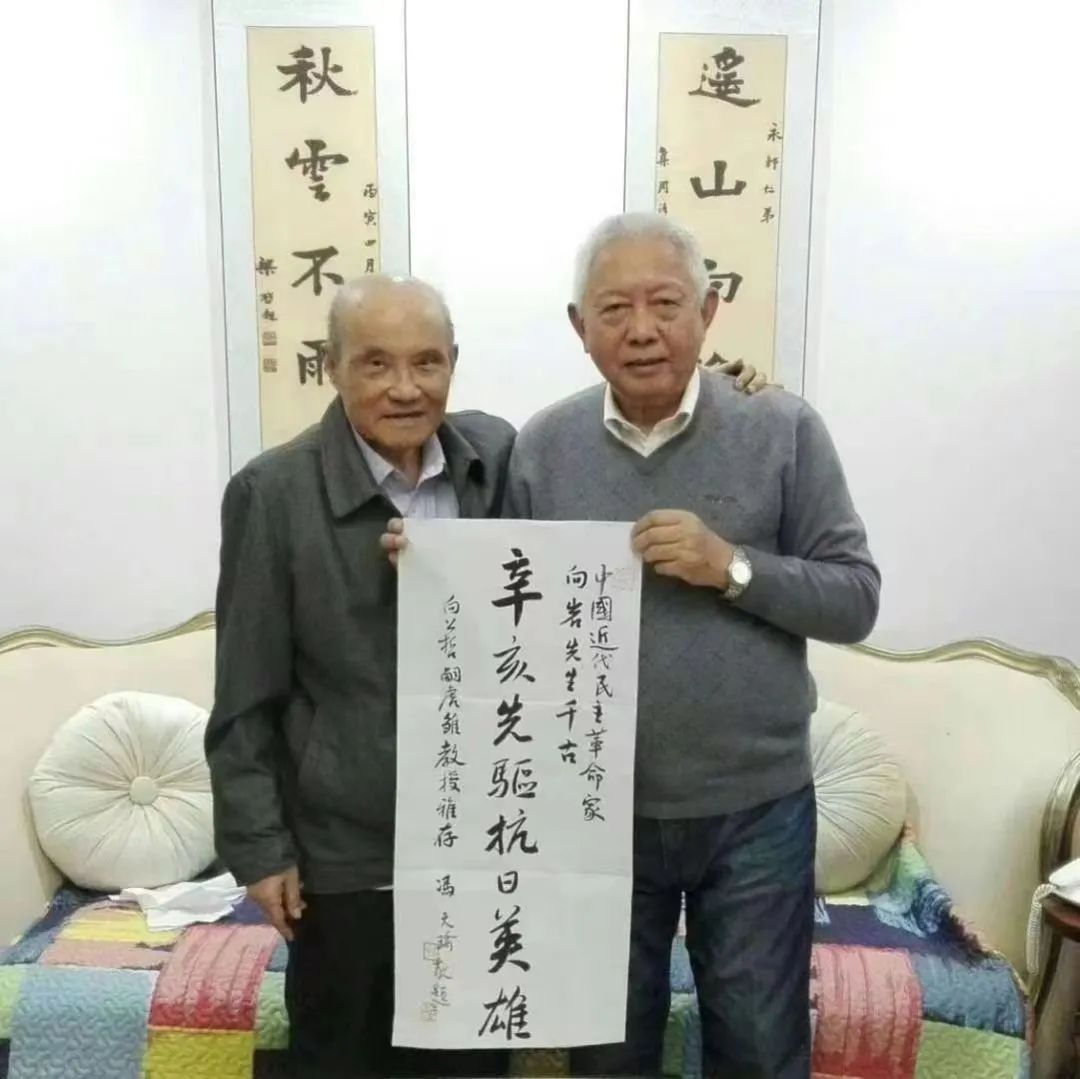 遥山向
永軒仁弟
秋雲不雨
丙寅四月
梁啓超
中國近代民主革命家
向岩先生千古
辛亥先驅抗日英雄
向公哲嗣虎雛教授雅存
馮天瑜敬題